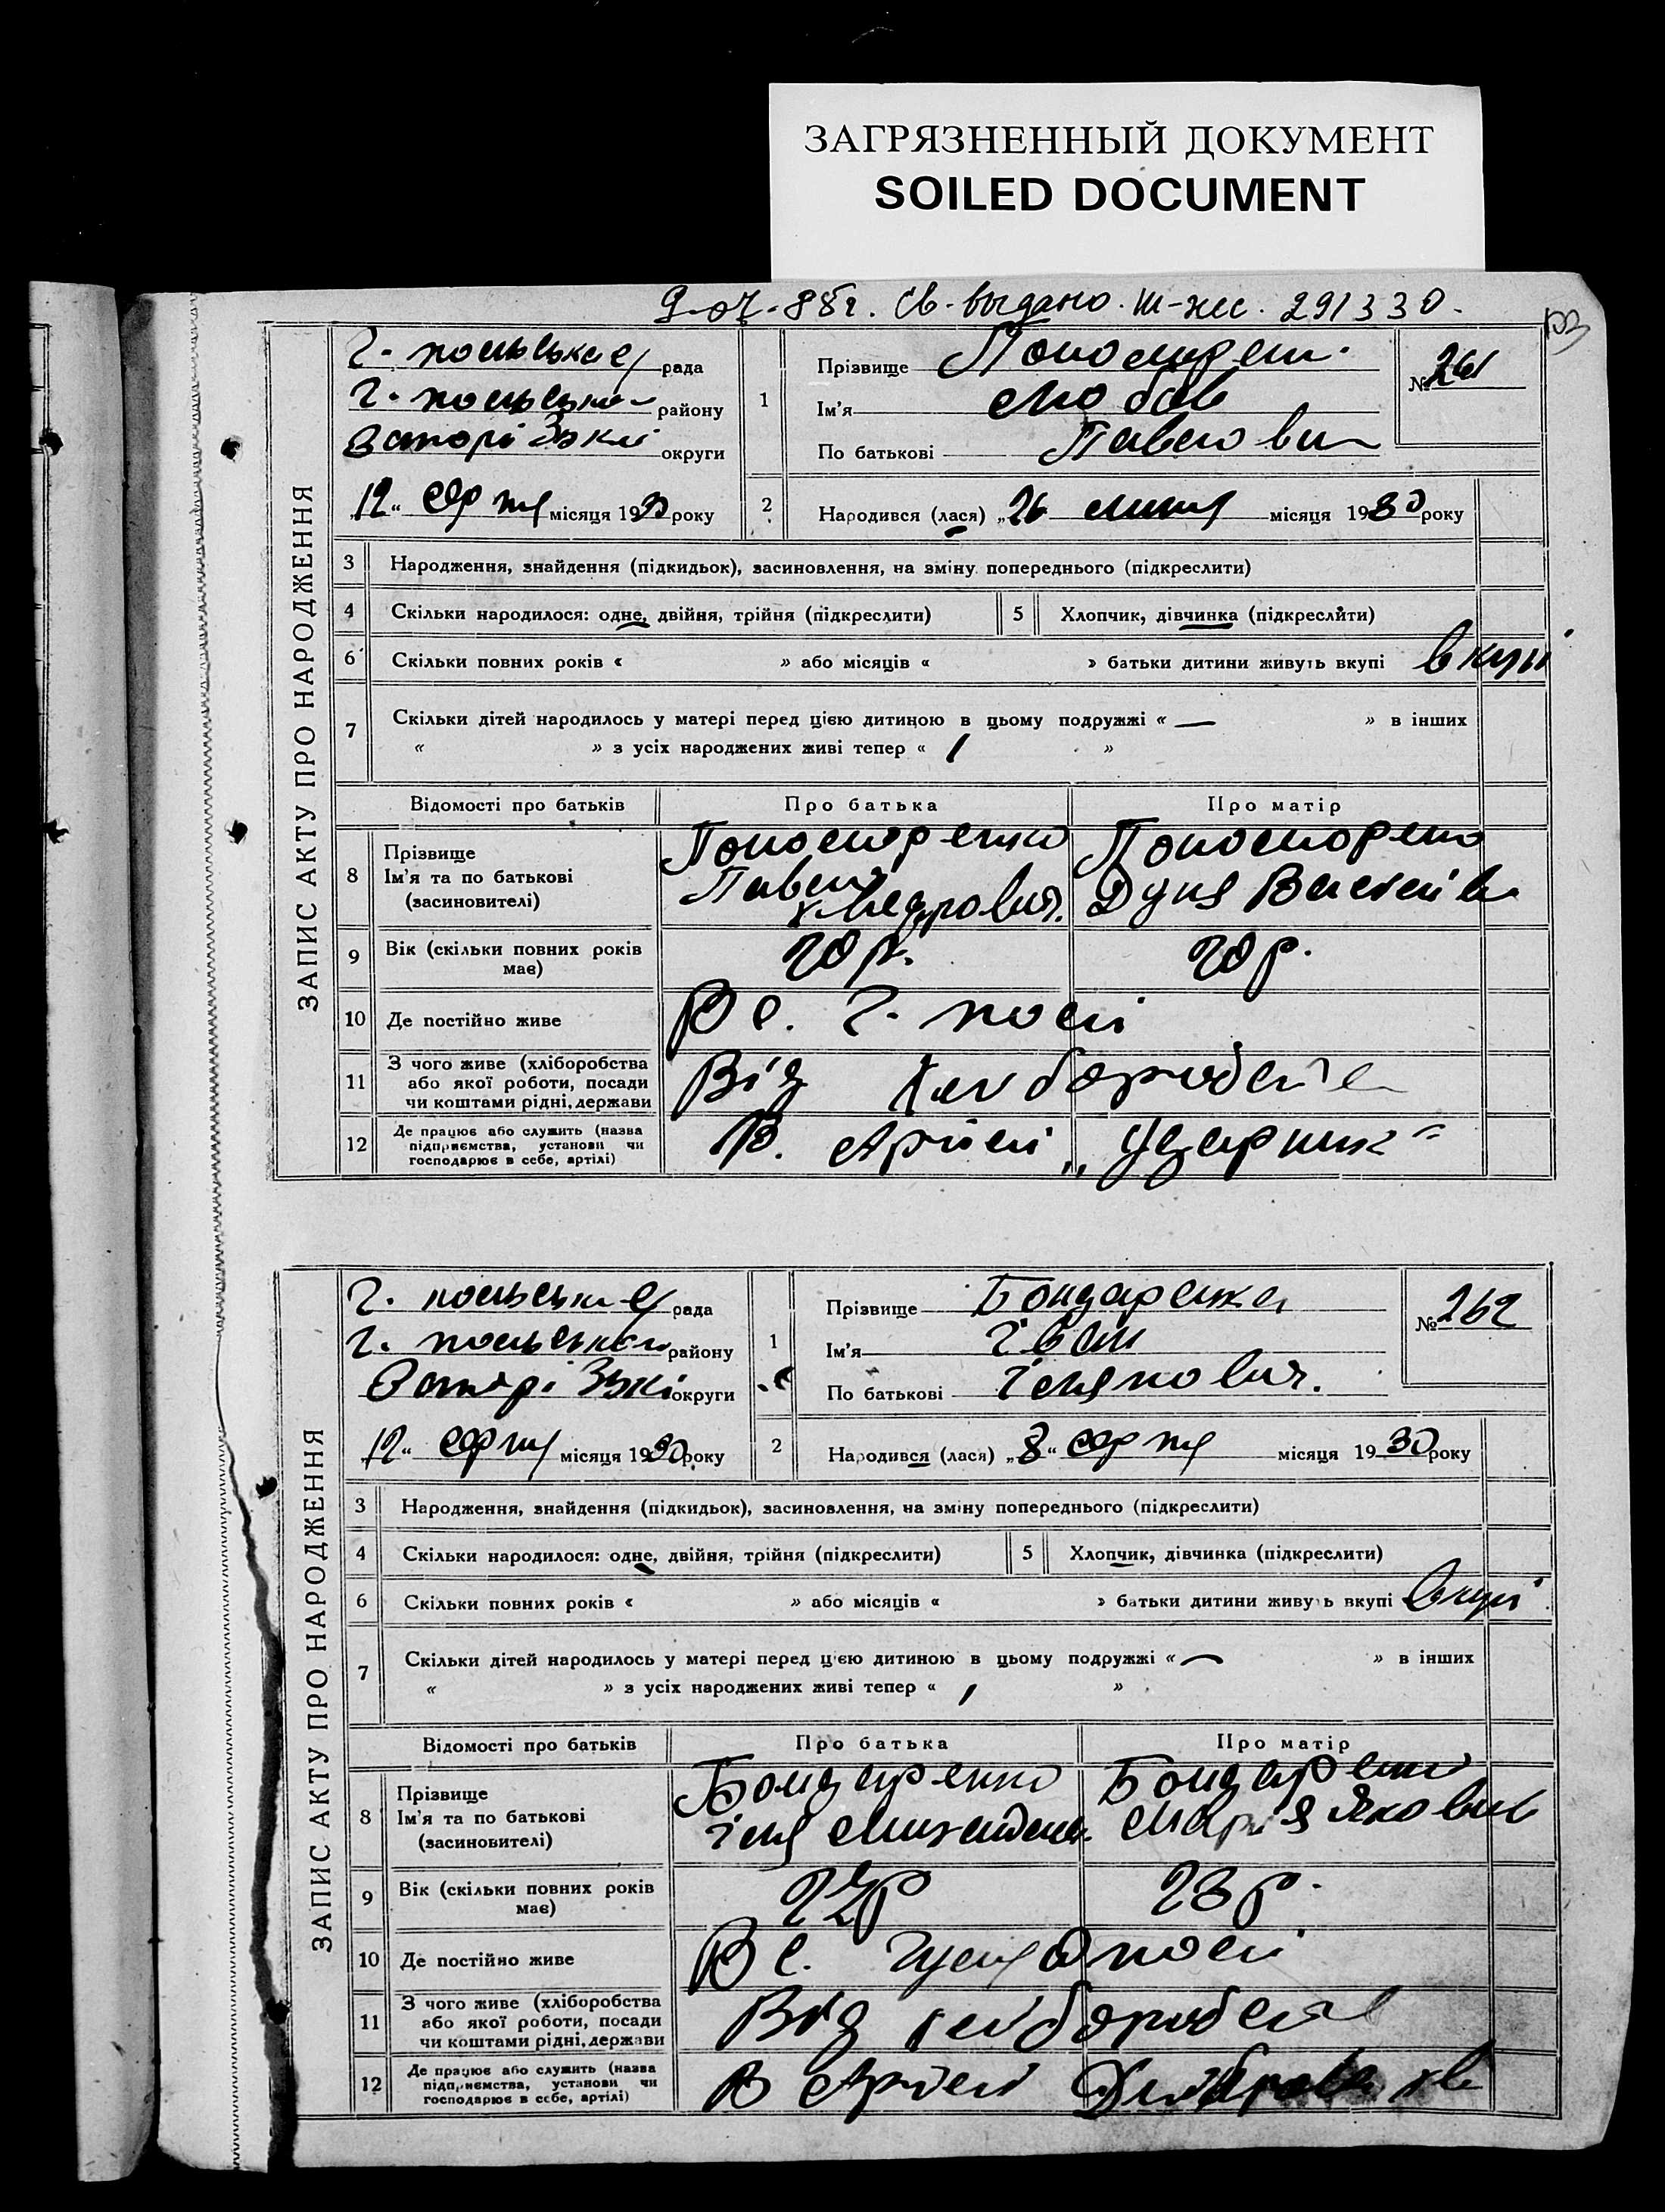 ЗАГРЯЗНЕННЫЙ ДОКУМЕНТ
SOILED DOCUMENT
9-07-88г. Св-выдано. ІІІ-жс. 291330.
ЗАПИС АКТУ ПРО НАРОДЖЕННЯ
Г. рада
Г. району
округи
„12“ місяця 1930 року
1 Прізвище
Ім'я Любов
По батькові Павлов
№ 261
2 Народився (лася) „26 липня місяця 1930 року
3 Народження, знайдення (підкидьок), засиновлення, на зміну попереднього (підкреслити)
4 Скільки народилося: одне, двійня, трійня (підкреслити) 5 Хлопчик, дівчинка (підкреслити)
6 Скільки повних років « » або місяців « » батьки дитини живуть вкупі вкупі
7 Скільки дітей народилось у матері перед цією дитиною в цьому подружжі « — » в інших
« » з усіх народжених живі тепер « 1 »
Відомості про батьків Про батька Про матір
8 Прізвище
Ім'я та по батькові
(засновителі)
9 Вік (скільки повних років має) 20 р. 20 р.
10 Де постійно живе В с. Г. полі
11 З чого живе (хліборобства
або якої роботи, посади
чи коштами рідні, держави Від хліборобства
12 Де працює або служить (назва
підприємства, установи чи
господарює в себе, артілі) В. Артілі „Ударник“
ЗАПИС АКТУ ПРО НАРОДЖЕННЯ
Г. рада
Г. району
округи
„12“ місяця 1930 року
1 Прізвище Бондаренко
Ім'я Іван
По батькові Ілянович.
№ 262
2 Народився (лася) „8“ місяця 1930 року
3 Народження, знайдення (підкидьок), засиновлення, на зміну попереднього (підкреслити)
4 Скільки народилося: одне, двійня, трійня (підкреслити) 5 Хлопчик, дівчинка (підкреслити)
6 Скільки повних років « » або місяців « » батьки дитини живуть вкупі вкупі
7 Скільки дітей народилось у матері перед цією дитиною в цьому подружжі « — » в інших
« » з усіх народжених живі тепер « 1 »
Відомості про батьків Про батька Про матір
8 Прізвище Бондаренко Бондаренко
Ім'я та по батькові Ілля Марія Яковив
(засиновителі)
9 Вік (скільки повних років має) 22 р 23 р.
10 Де постійно живе В с. Гуляйполі
11 З чого живе (хліборобства
або якої роботи, посади
чи коштами рідні, держави Від хліборобства
12 Де працює або служить (назва
підприємства, установи чи
господарює в себе, артілі) В Артілі